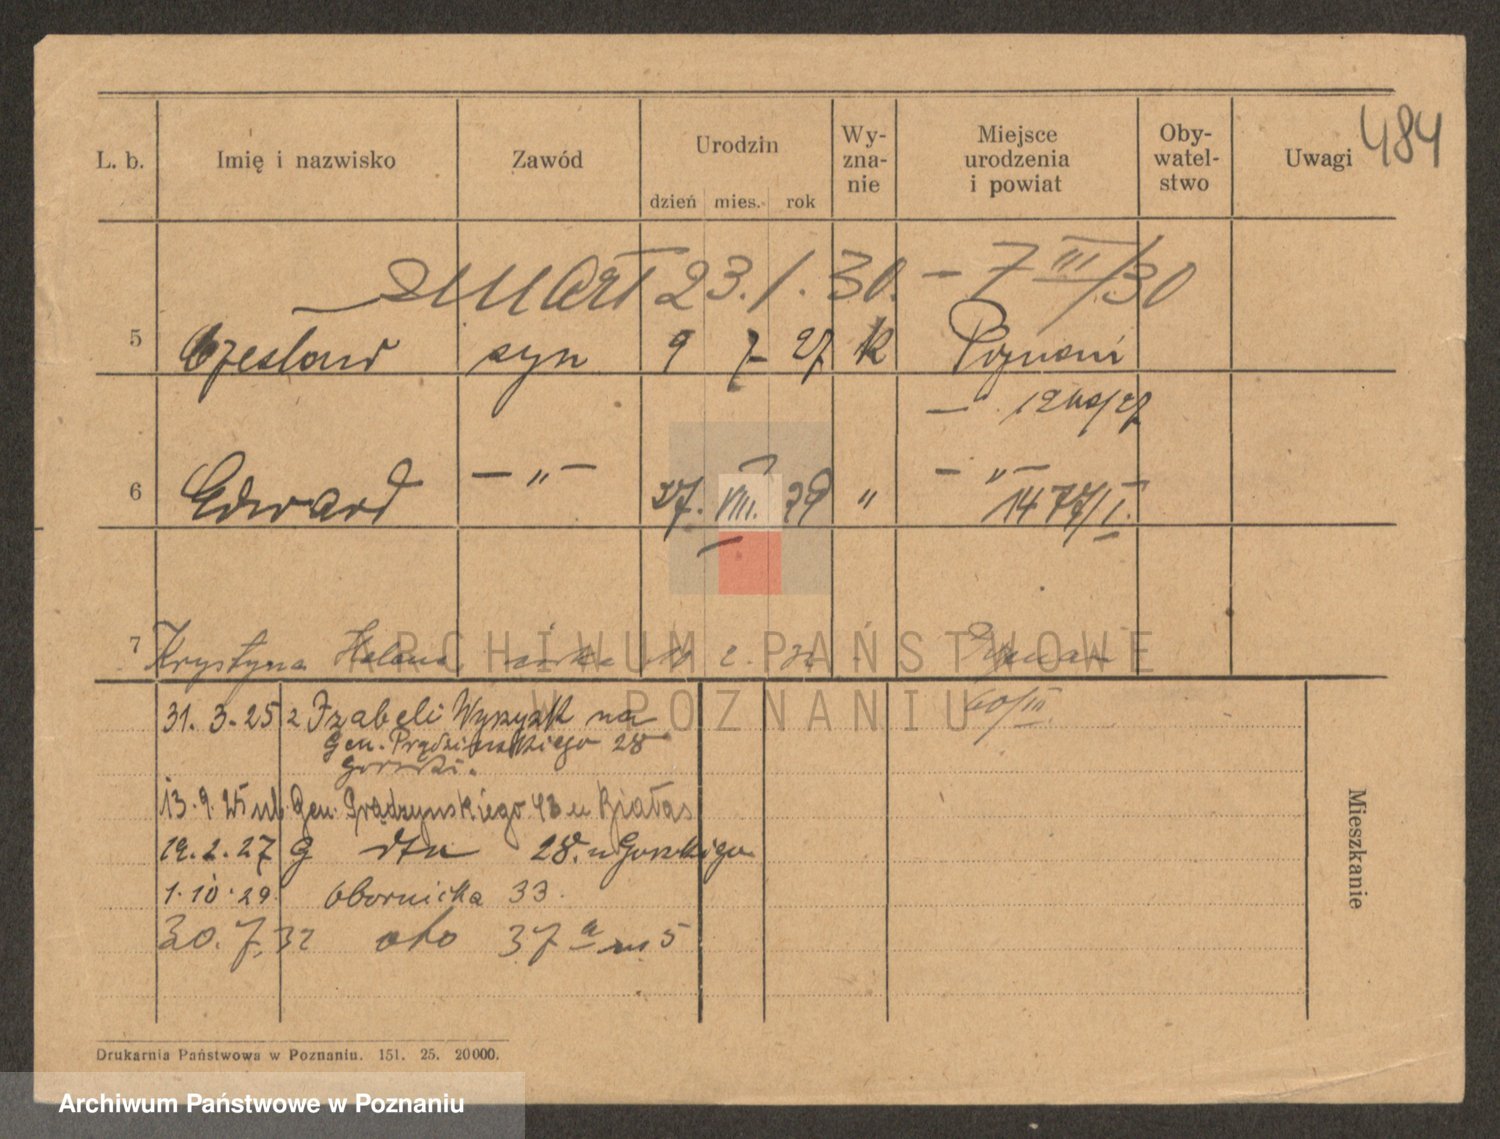 484
L. b. Imię i nazwisko Zawód Urodzin Wy-zna-nie Miejsce urodzenia i powiat Oby-watel-stwo Uwagi
dzień mies. rok
zmarł 23.1.30. – 7 III/30
5 Czesław syn 9 7 27 k Poznań
6 Edward – " – 27. VIII. 29 " – " –
1477/I.
7 Krystyna Helena córka 2.
60/III
31.3.25 z Izabeli Wyrzysk na
Gen. Prądzyńskiego 28
13.9.25 Gen. Prądzyńskiego 43 u Białas
19.2.27 G dtn 28. u Gorskiego
1.10.29 Obornicka 33.
30.7.32 oto 37a m 5
Mieszkanie
ARCHIWUM PAŃSTWOWE
W POZNANIU
Drukarnia Państwowa w Poznaniu. 151. 25. 20000.
Archiwum Państwowe w Poznaniu